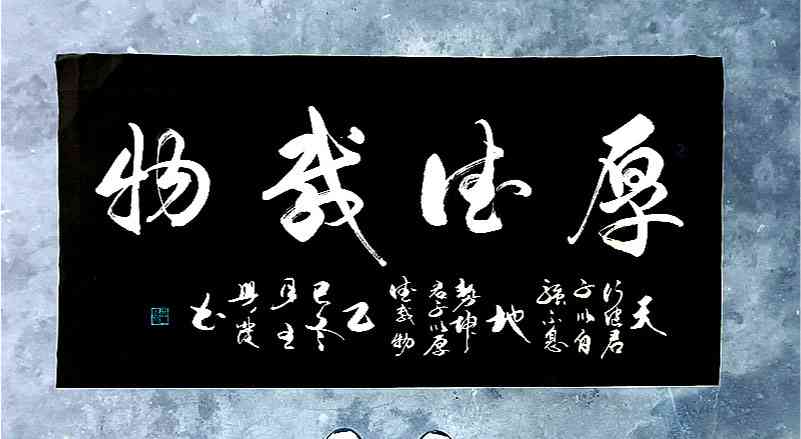 厚德载物
天
行健君
子以自
强不息
地
势坤
君子以厚
德载物
乙
巳冬
月
书